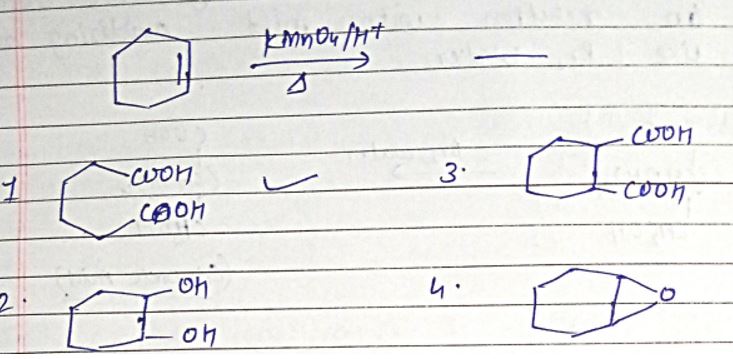 KMnO4/H+
Δ
1 COOH COOH ✓
3. COOH COOH
2. OH OH
4. O